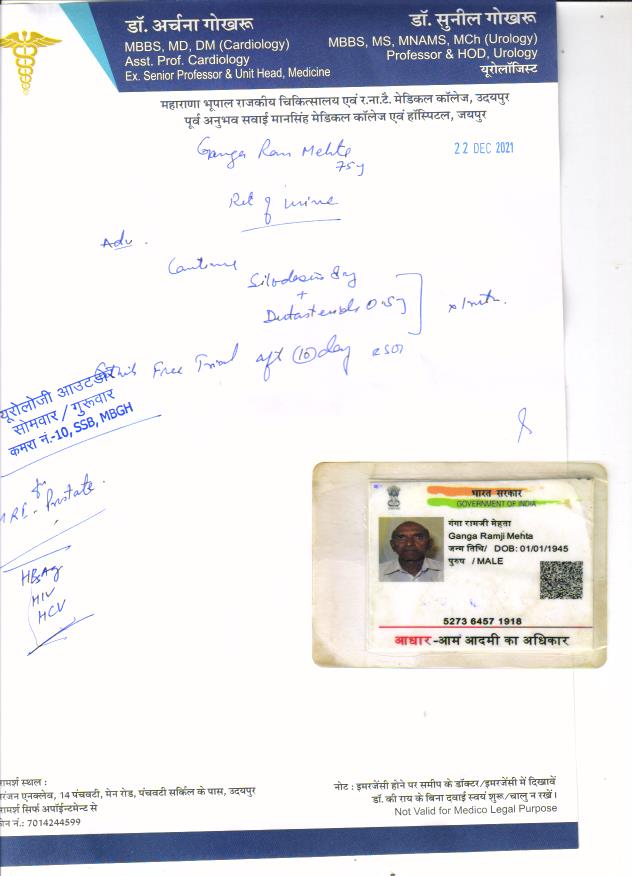 डॉ. अर्चना गोखरू
MBBS, MD, DM (Cardiology)
Asst. Prof. Cardiology
Ex. Senior Professor & Unit Head, Medicine
डॉ. सुनील गोखरू
MBBS, MS, MNAMS, MCh (Urology)
Professor & HOD, Urology
यूरोलॉजिस्ट
महाराणा भूपाल राजकीय चिकित्सालय एवं र.ना.टै. मेडिकल कॉलेज, उदयपुर
पूर्व अनुभव सवाई मानसिंह मेडिकल कॉलेज एवं हॉस्पिटल, जयपुर
Ganga Ram Mehta
75y
22 DEC 2021
Ret of urine
Adv.
Continue
Silodosin 8mg
+
Dutasteride 0.5mg
Free Trial aft 10 day
यूरोलॉजी आउटडोर
सोमवार / गुरूवार
कमरा नं.-10, SSB, MBGH
Prostate
HBsAg
HIV
HCV
भारत सरकार
GOVERNMENT OF INDIA
गंगा रामजी मेहता
Ganga Ramji Mehta
जन्म तिथि/ DOB: 01/01/1945
पुरुष / MALE
5273 6457 1918
आधार -आम आदमी का अधिकार
स्थल :
एनक्लेव, 14 पंचवटी, मेन रोड, पंचवटी सर्किल के पास, उदयपुर
सिर्फ अपॉईन्टमेन्ट से
नं.: 7014244599
नोट : इमरजेंसी होने पर समीप के डॉक्टर/इमरजेंसी में दिखावें
डॉ. की राय के बिना दवाई स्वयं शुरू/चालु न रखें।
Not Valid for Medico Legal Purpose